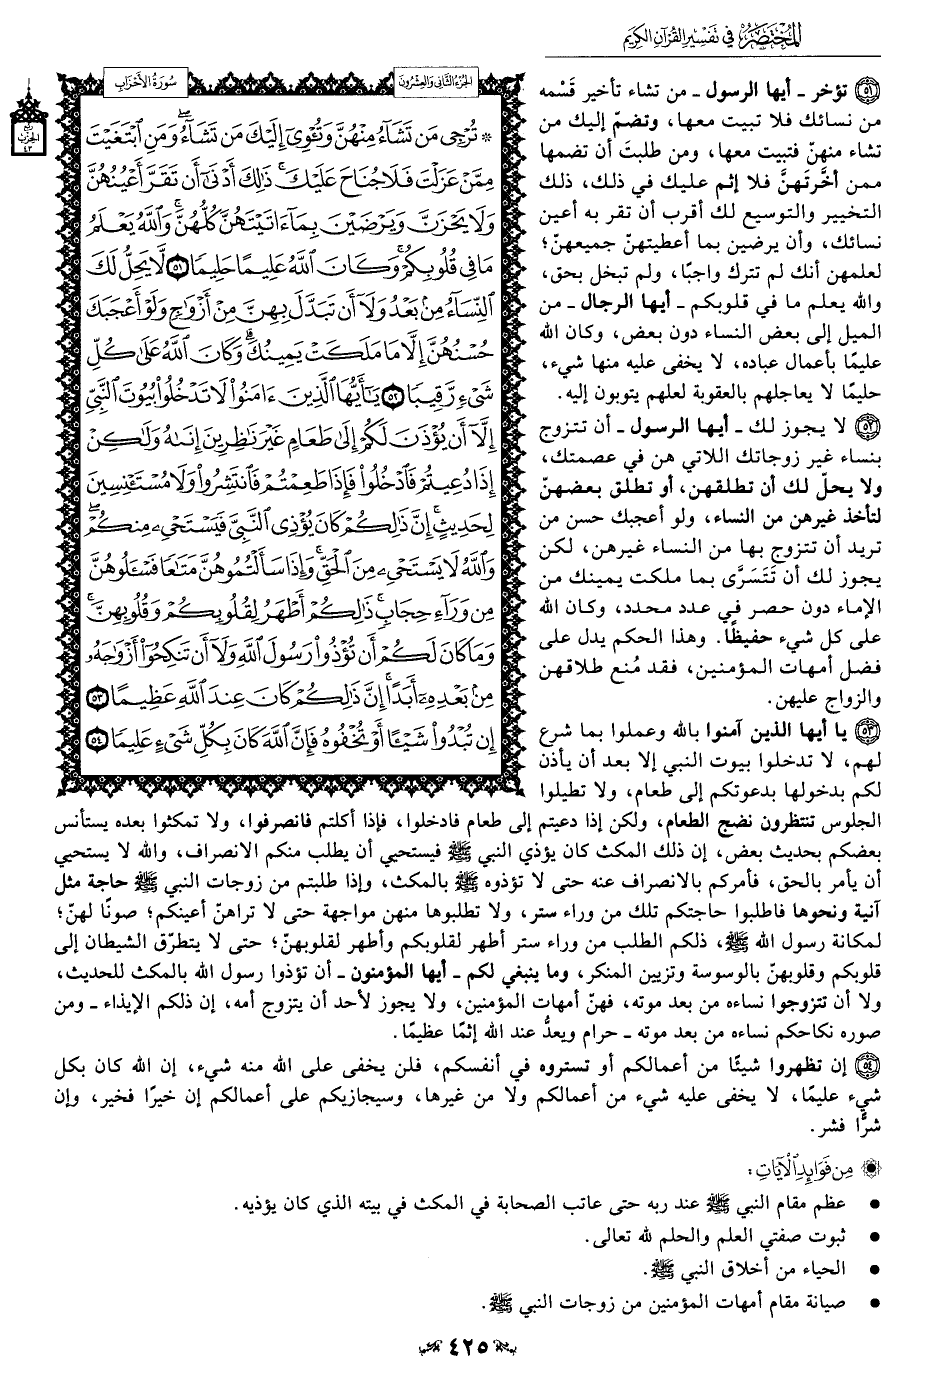 المختصر في تفسير القرآن الكريم
الجزء الثاني والعشرون
سورة الأحزاب
ربع
الحزب
٤٣
* تُرْجِي مَن تَشَآءُ مِنْهُنَّ وَتُـْٔوِيٓ إِلَيْكَ مَن تَشَآءُۖ وَمَنِ ٱبْتَغَيْتَ
مِمَّنْ عَزَلْتَ فَلَا جُنَاحَ عَلَيْكَۚ ذَٰلِكَ أَدْنَىٰٓ أَن تَقَرَّ أَعْيُنُهُنَّ
وَلَا يَحْزَنَّ وَيَرْضَيْنَ بِمَآ ءَاتَيْتَهُنَّ كُلُّهُنَّۚ وَٱللَّهُ يَعْلَمُ
مَا فِي قُلُوبِكُمْۚ وَكَانَ ٱللَّهُ عَلِيمًا حَلِيمًا ٥١ لَّا يَحِلُّ لَكَ
ٱلنِّسَآءُ مِنۢ بَعْدُ وَلَآ أَن تَبَدَّلَ بِهِنَّ مِنْ أَزْوَٰجٍ وَلَوْ أَعْجَبَكَ
حُسْنُهُنَّ إِلَّا مَا مَلَكَتْ يَمِينُكَۗ وَكَانَ ٱللَّهُ عَلَىٰ كُلِّ
شَيْءٍ رَّقِيبًا ٥٢ يَٰٓأَيُّهَا ٱلَّذِينَ ءَامَنُوا۟ لَا تَدْخُلُوا۟ بُيُوتَ ٱلنَّبِيِّ
إِلَّآ أَن يُؤْذَنَ لَكُمْ إِلَىٰ طَعَامٍ غَيْرَ نَٰظِرِينَ إِنَىٰهُ وَلَٰكِنْ
إِذَا دُعِيتُمْ فَٱدْخُلُوا۟ فَإِذَا طَعِمْتُمْ فَٱنتَشِرُوا۟ وَلَا مُسْتَـْٔنِسِينَ
لِحَدِيثٍۚ إِنَّ ذَٰلِكُمْ كَانَ يُؤْذِي ٱلنَّبِيَّ فَيَسْتَحْيِۦ مِنكُمْۖ
وَٱللَّهُ لَا يَسْتَحْيِۦ مِنَ ٱلْحَقِّۚ وَإِذَا سَأَلْتُمُوهُنَّ مَتَٰعًا فَسْـَٔلُوهُنَّ
مِن وَرَآءِ حِجَابٍۚ ذَٰلِكُمْ أَطْهَرُ لِقُلُوبِكُمْ وَقُلُوبِهِنَّۚ
وَمَا كَانَ لَكُمْ أَن تُؤْذُوا۟ رَسُولَ ٱللَّهِ وَلَآ أَن تَنكِحُوٓا۟ أَزْوَٰجَهُۥ
مِنۢ بَعْدِهِۦٓ أَبَدًاۚ إِنَّ ذَٰلِكُمْ كَانَ عِندَ ٱللَّهِ عَظِيمًا ٥٣
إِن تُبْدُوا۟ شَيْـًٔا أَوْ تُخْفُوهُ فَإِنَّ ٱللَّهَ كَانَ بِكُلِّ شَيْءٍ عَلِيمًا ٥٤
٥١ تؤخر ـ أيها الرسول ـ من تشاء تأخير قَسْمه
من نسائك فلا تبيت معها، وتضمّ إليك من
تشاء منهنّ فتبيت معها، ومن طلبتَ أن تضمها
ممن أخَّرتَهنَّ فلا إثم عليك في ذلك، ذلك
التخيير والتوسيع لك أقرب أن تقر به أعين
نسائك، وأن يرضين بما أعطيتهنّ جميعهنّ؛
لعلمهن أنك لم تترك واجبًا، ولم تبخل بحق،
والله يعلم ما في قلوبكم ـ أيها الرجال ـ من
الميل إلى بعض النساء دون بعض، وكان الله
عليمًا بأعمال عباده، لا يخفى عليه منها شيء،
حليمًا لا يعاجلهم بالعقوبة لعلهم يتوبون إليه.
٥٢ لا يجوز لك ـ أيها الرسول ـ أن تتزوج
بنساء غير زوجاتك اللاتي هن في عصمتك،
ولا يحلّ لك أن تطلقهن، أو تطلق بعضهنّ
لتأخذ غيرهن من النساء، ولو أعجبك حسن من
تريد أن تتزوج بها من النساء غيرهن، لكن
يجوز لك أن تَتَسَرَّى بما ملكت يمينك من
الإماء دون حصر في عدد محدد، وكان الله
على كل شيء حفيظًا. وهذا الحكم يدل على
فضل أمهات المؤمنين، فقد مُنع طلاقهن
والزواج عليهن.
٥٣ يا أيها الذين آمنوا بالله وعملوا بما شرع
لهم، لا تدخلوا بيوت النبي إلا بعد أن يأذن
لكم بدخولها بدعوتكم إلى طعام، ولا تطيلوا
الجلوس تنتظرون نضج الطعام، ولكن إذا دعيتم إلى طعام فادخلوا، فإذا أكلتم فانصرفوا، ولا تمكثوا بعده يستأنس
بعضكم بحديث بعض، إن ذلك المكث كان يؤذي النبي ﷺ فيستحيي أن يطلب منكم الانصراف، والله لا يستحيي
أن يأمر بالحق، فأمركم بالانصراف عنه حتى لا تؤذوه ﷺ بالمكث، وإذا طلبتم من زوجات النبي ﷺ حاجة مثل
آنية ونحوها فاطلبوا حاجتكم تلك من وراء ستر، ولا تطلبوها منهن مواجهة حتى لا تراهنّ أعينكم؛ صونًا لهنّ؛
لمكانة رسول الله ﷺ، ذلكم الطلب من وراء ستر أطهر لقلوبكم وأطهر لقلوبهنّ؛ حتى لا يتطرّق الشيطان إلى
قلوبكم وقلوبهنّ بالوسوسة وتزيين المنكر، وما ينبغي لكم ـ أيها المؤمنون ـ أن تؤذوا رسول الله بالمكث للحديث،
ولا أن تتزوجوا نساءه من بعد موته، فهنّ أمهات المؤمنين، ولا يجوز لأحد أن يتزوج أمه، إن ذلكم الإيذاء ـ ومن
صوره نكاحكم نساءه من بعد موته ـ حرام ويعدُّ عند الله إثمًا عظيمًا.
٥٤ إن تظهروا شيئًا من أعمالكم أو تستروه في أنفسكم، فلن يخفى على الله منه شيء، إن الله كان بكل
شيء عليمًا، لا يخفى عليه شيء من أعمالكم ولا من غيرها، وسيجازيكم على أعمالكم إن خيرًا فخير، وإن
شرًّا فشر.
من فوائد الآيات:
• عظم مقام النبي ﷺ عند ربه حتى عاتب الصحابة في المكث في بيته الذي كان يؤذيه.
• ثبوت صفتي العلم والحلم لله تعالى.
• الحياء من أخلاق النبي ﷺ.
• صيانة مقام أمهات المؤمنين من زوجات النبي ﷺ.
٤٢٥